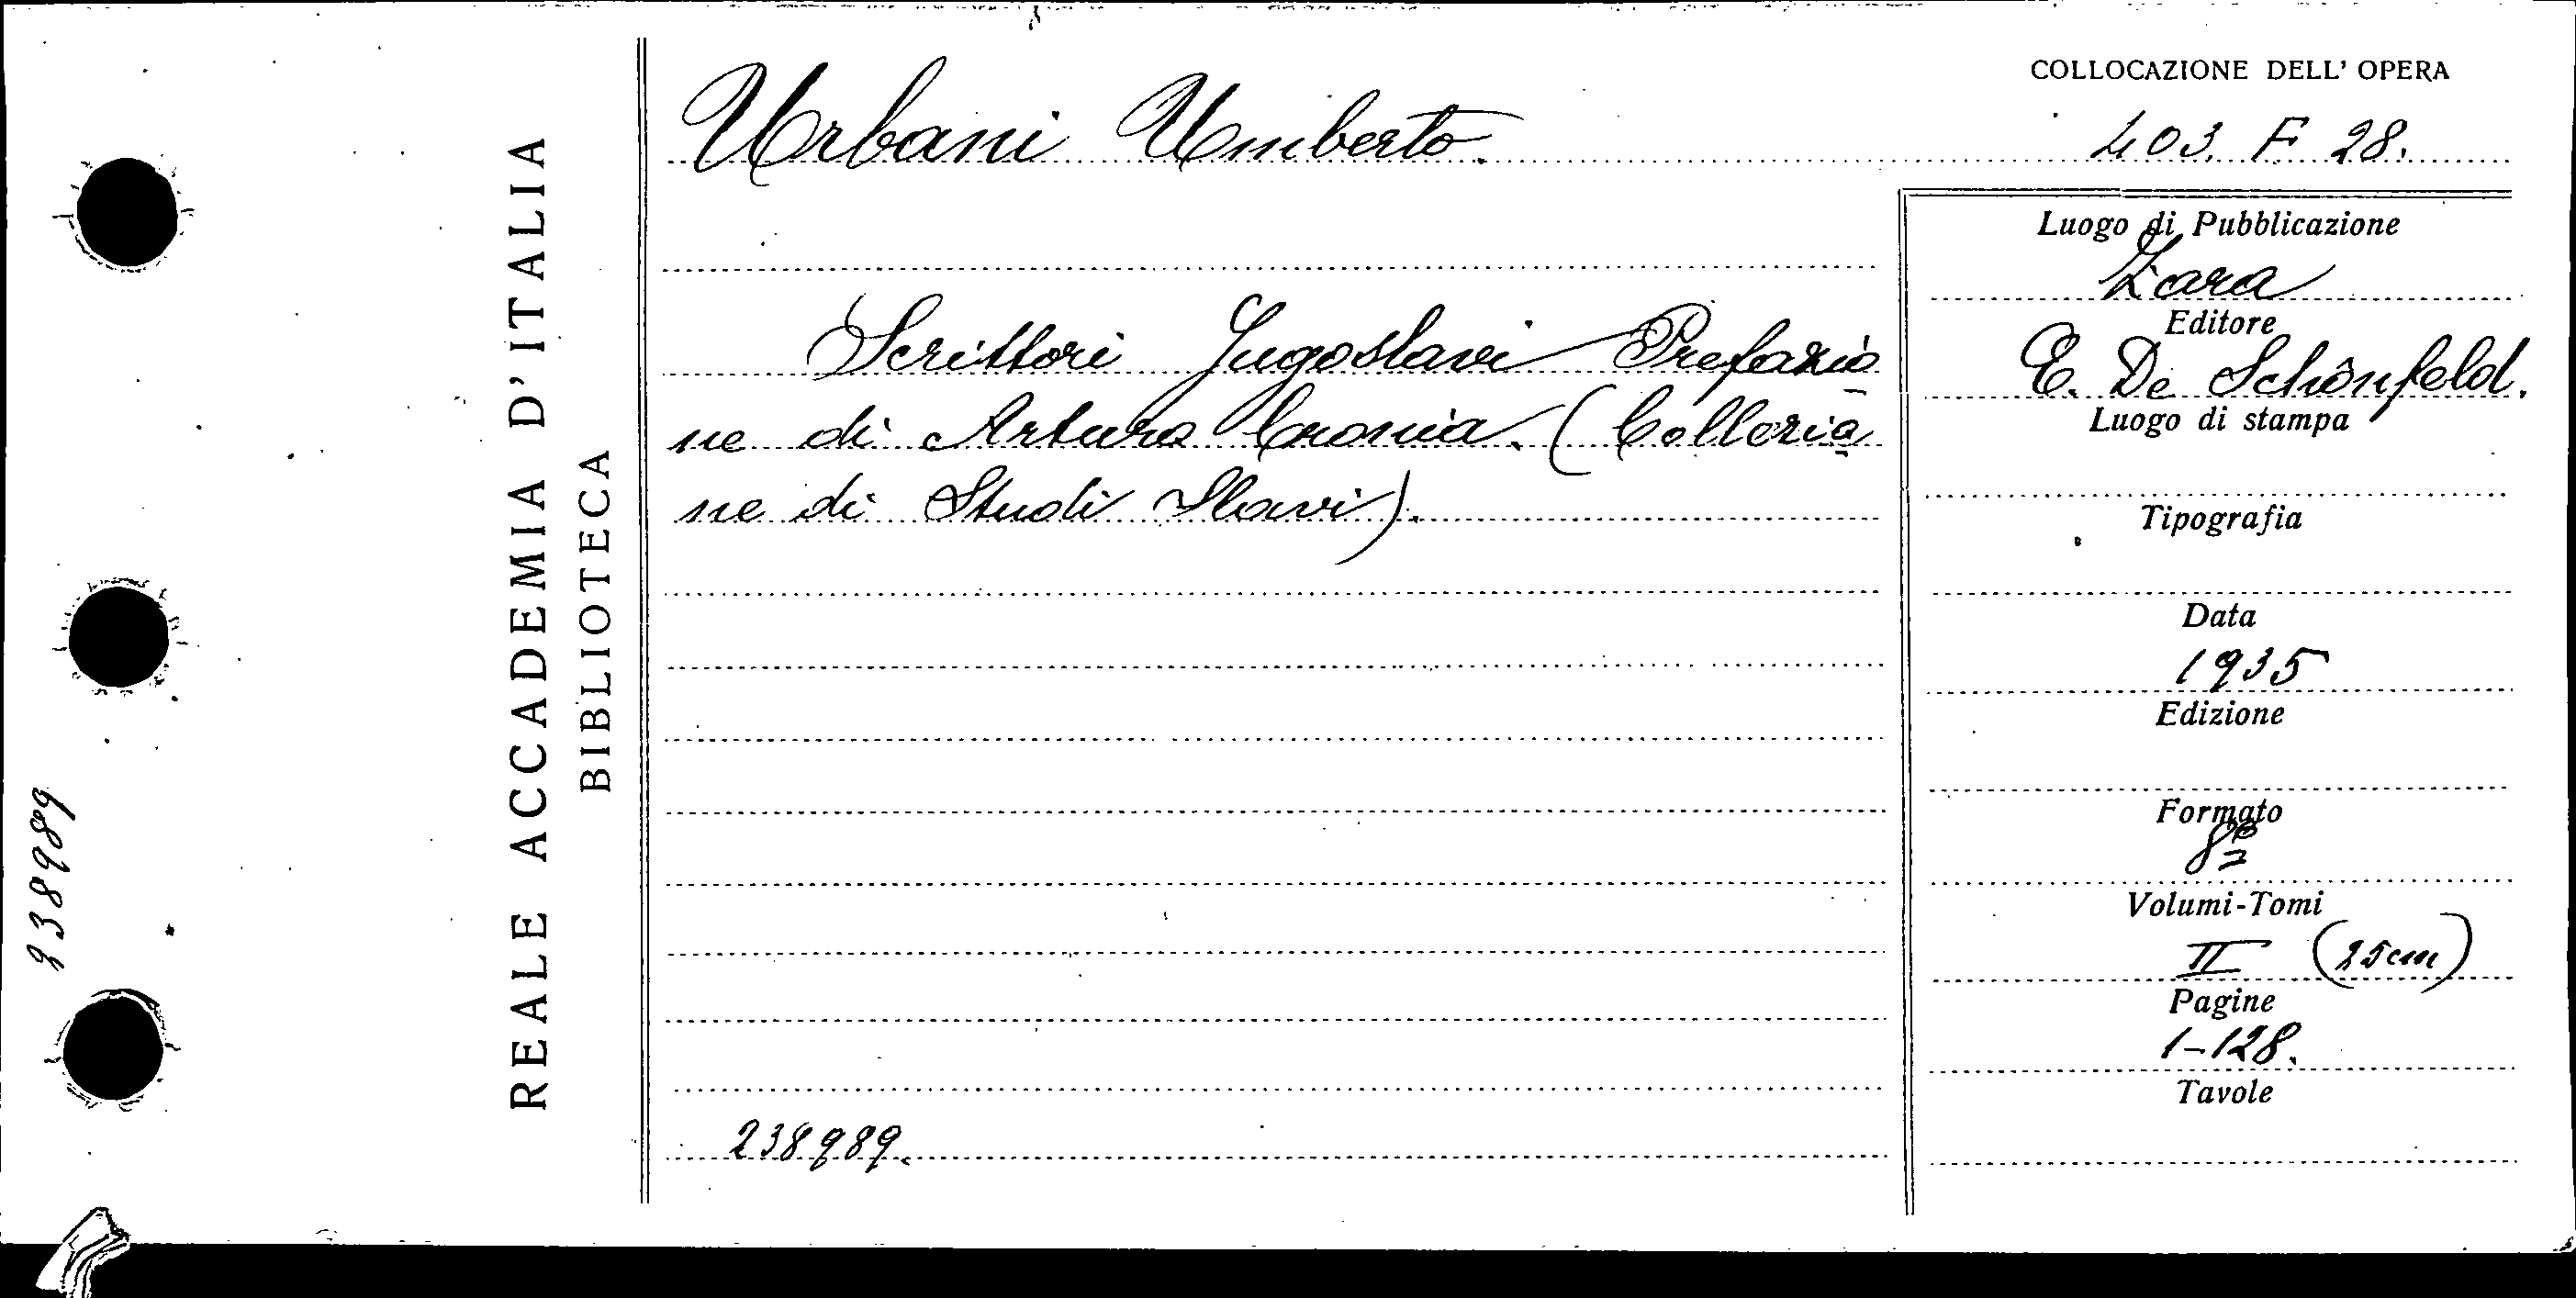 COLLOCAZIONE DELL' OPERA
Urbani Umberto.
403. F 28.
Scrittori Jugoslavi Prefazio
ne di Arturo Cronia. (Collezio
ne di Studi Slavi).
238989.
Luogo di Pubblicazione
Zara
Editore
E. De Schönfeld.
Luogo di stampa
Tipografia
Data
1935
Edizione
Formato
8º
Volumi-Tomi
II (25cm)
Pagine
1-128.
Tavole
REALE ACCADEMIA D'ITALIA
BIBLIOTECA
238989